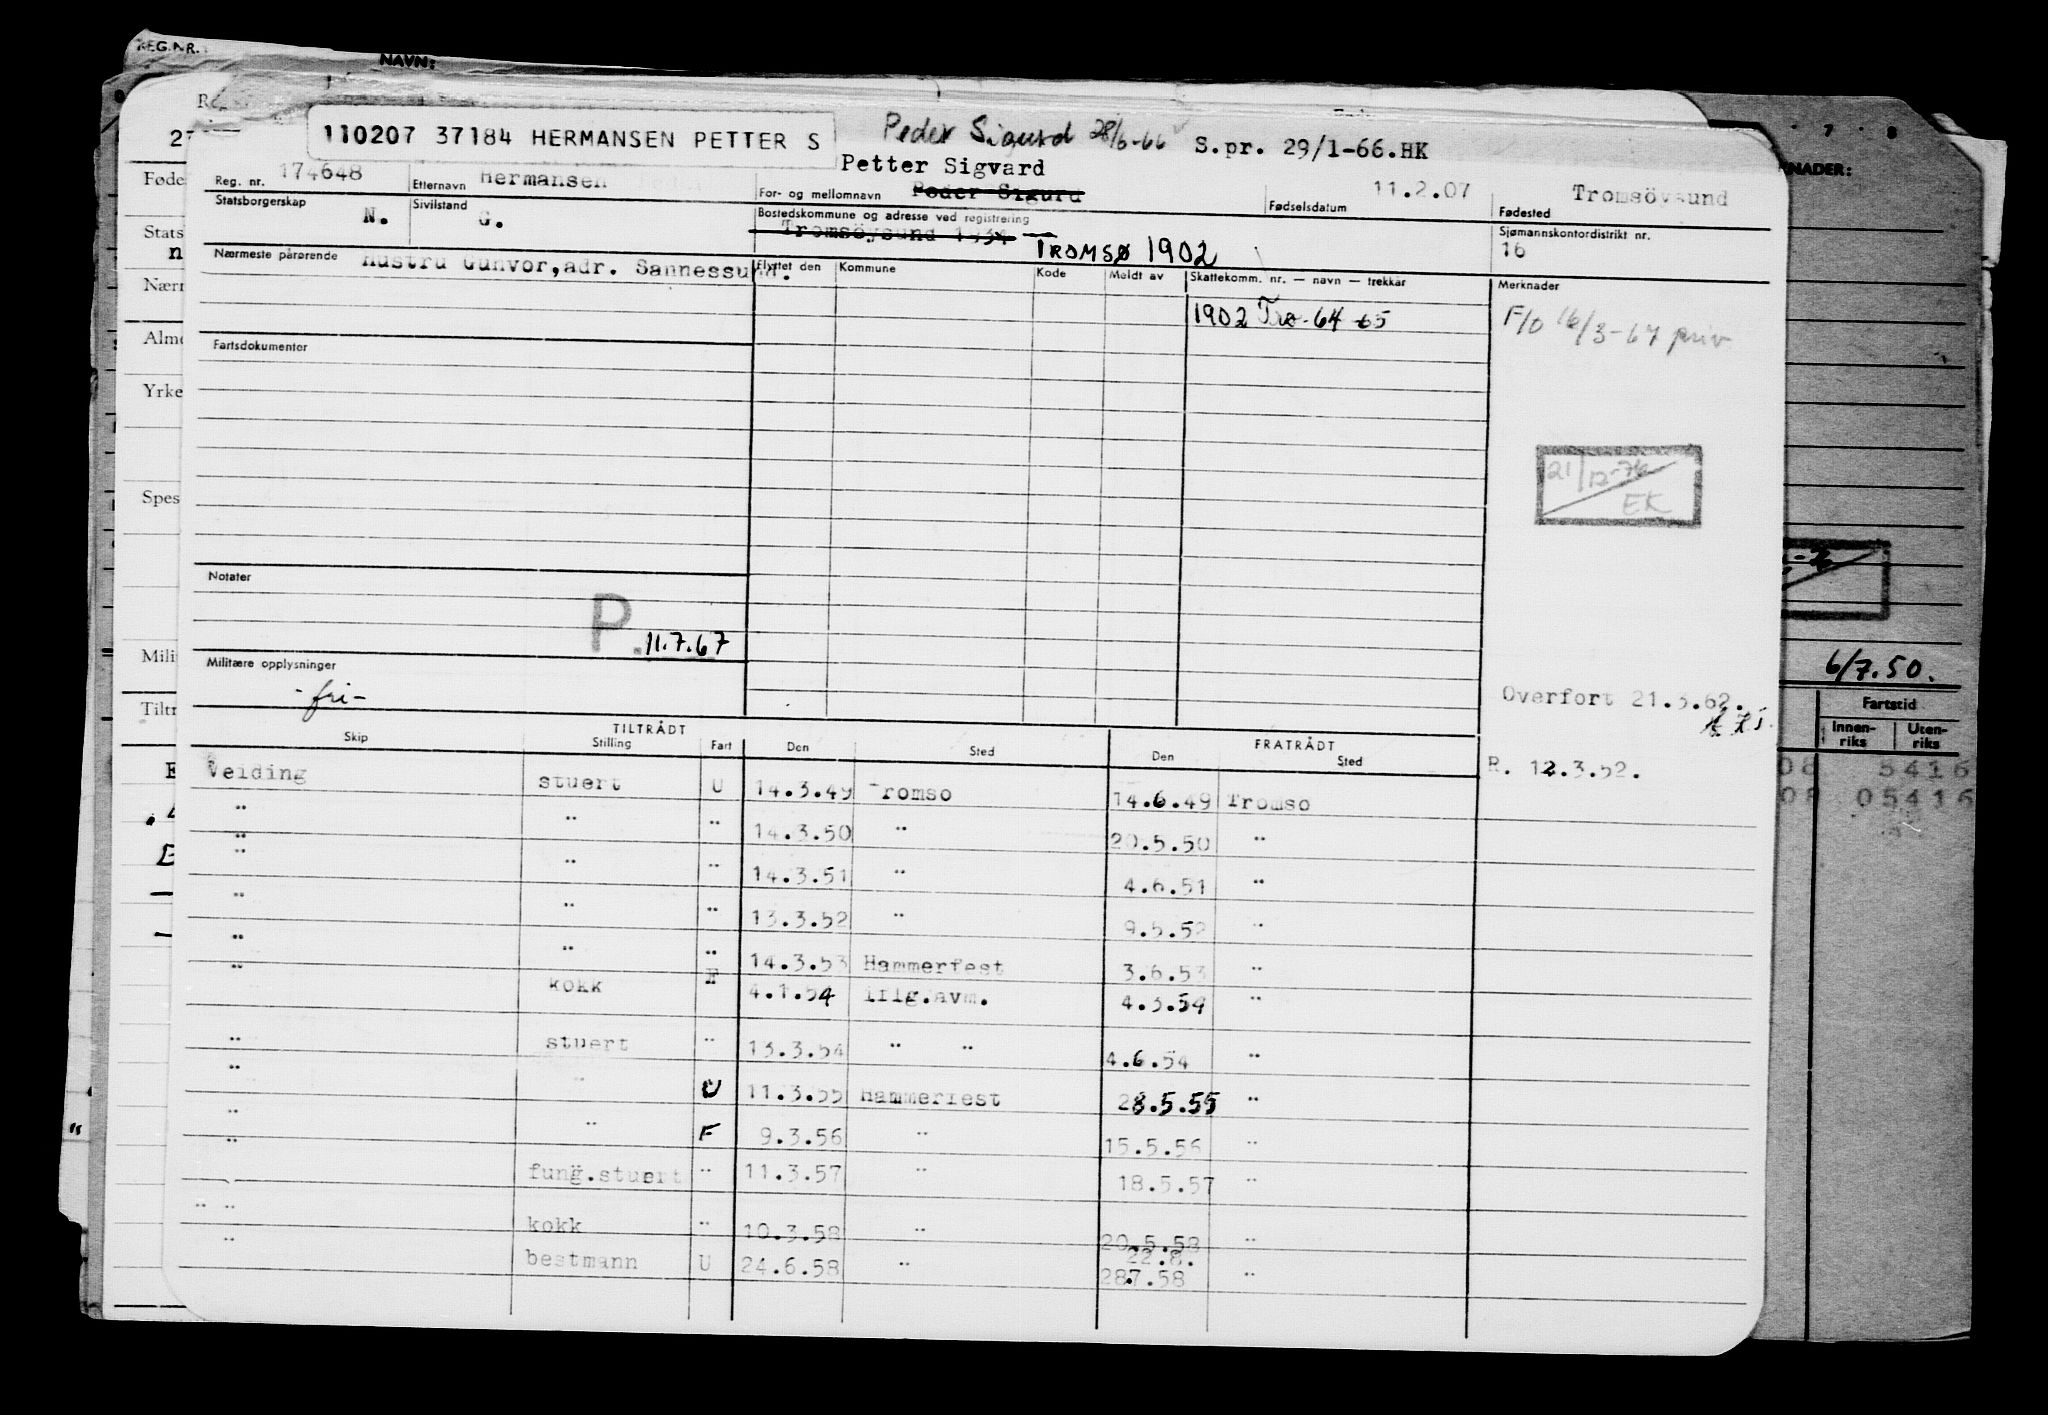 REG.NR.
NAVN:
110207 37184 HERMANSEN PETTER S
Peder Sigurd 28/6-66
S.pr. 29/1-66.HK
Petter Sigvard
Reg. nr. 174648 Etternavn Hermansen For- og mellomnavn Peder Sigurd Fødselsdatum 11.2.07 Fødested Tromsöysund
Statsborgerskap N. Sivilstand G. Bostedskommune og adresse ved registrering Tromsöysund 1934 TROMSØ 1902 Sjømannskontordistrikt nr. 16
Nærmeste pårørende Hustru Gunvor,adr. Sannessund.
Flyttet den Kommune Kode Meldt av Skattekomm. nr. — navn — trekkår Merknader
1902 Tro-64-65
F/O 16/3-67 priv
Fartsdokumenter
21/12-76
EK
Notater
P. 11.7.67
Militære opplysninger
-fri-
Overfort 21.3.62.
R. 12.3.52.
TILTRÅDT FRATRÅDT
Skip Stilling Fart Den Sted Den Sted
Veiding stuert U 14.3.49 Tromso 14.6.49 Tromso
" " " 14.3.50 " 20.5.50 "
" " " 14.3.51 " 4.6.51 "
" " " 13.3.52 " 9.5.52 "
" " " 14.3.53 Hammerfest 3.6.53 "
" kokk F 4.1.54 iflg.avm. 4.3.54 "
" stuert " 13.3.54 " " 4.6.54 "
" " U 11.3.55 Hammerfest 28.5.55 "
" " F 9.3.56 " 15.5.56 "
" fung.stuert " 11.3.57 " 18.5.57 "
" " kokk " 10.3.58 " 20.5.58 "
22.8.
" bestmann U 24.6.58 " 287.58 "
Føde
Stats
Nærn
Alme
Yrke
Spes
Milit
Tiltr
7 8
KNADER:
6/7.50.
Fartstid
Innen-
riks
Uten-
riks
08 5416
08 05416